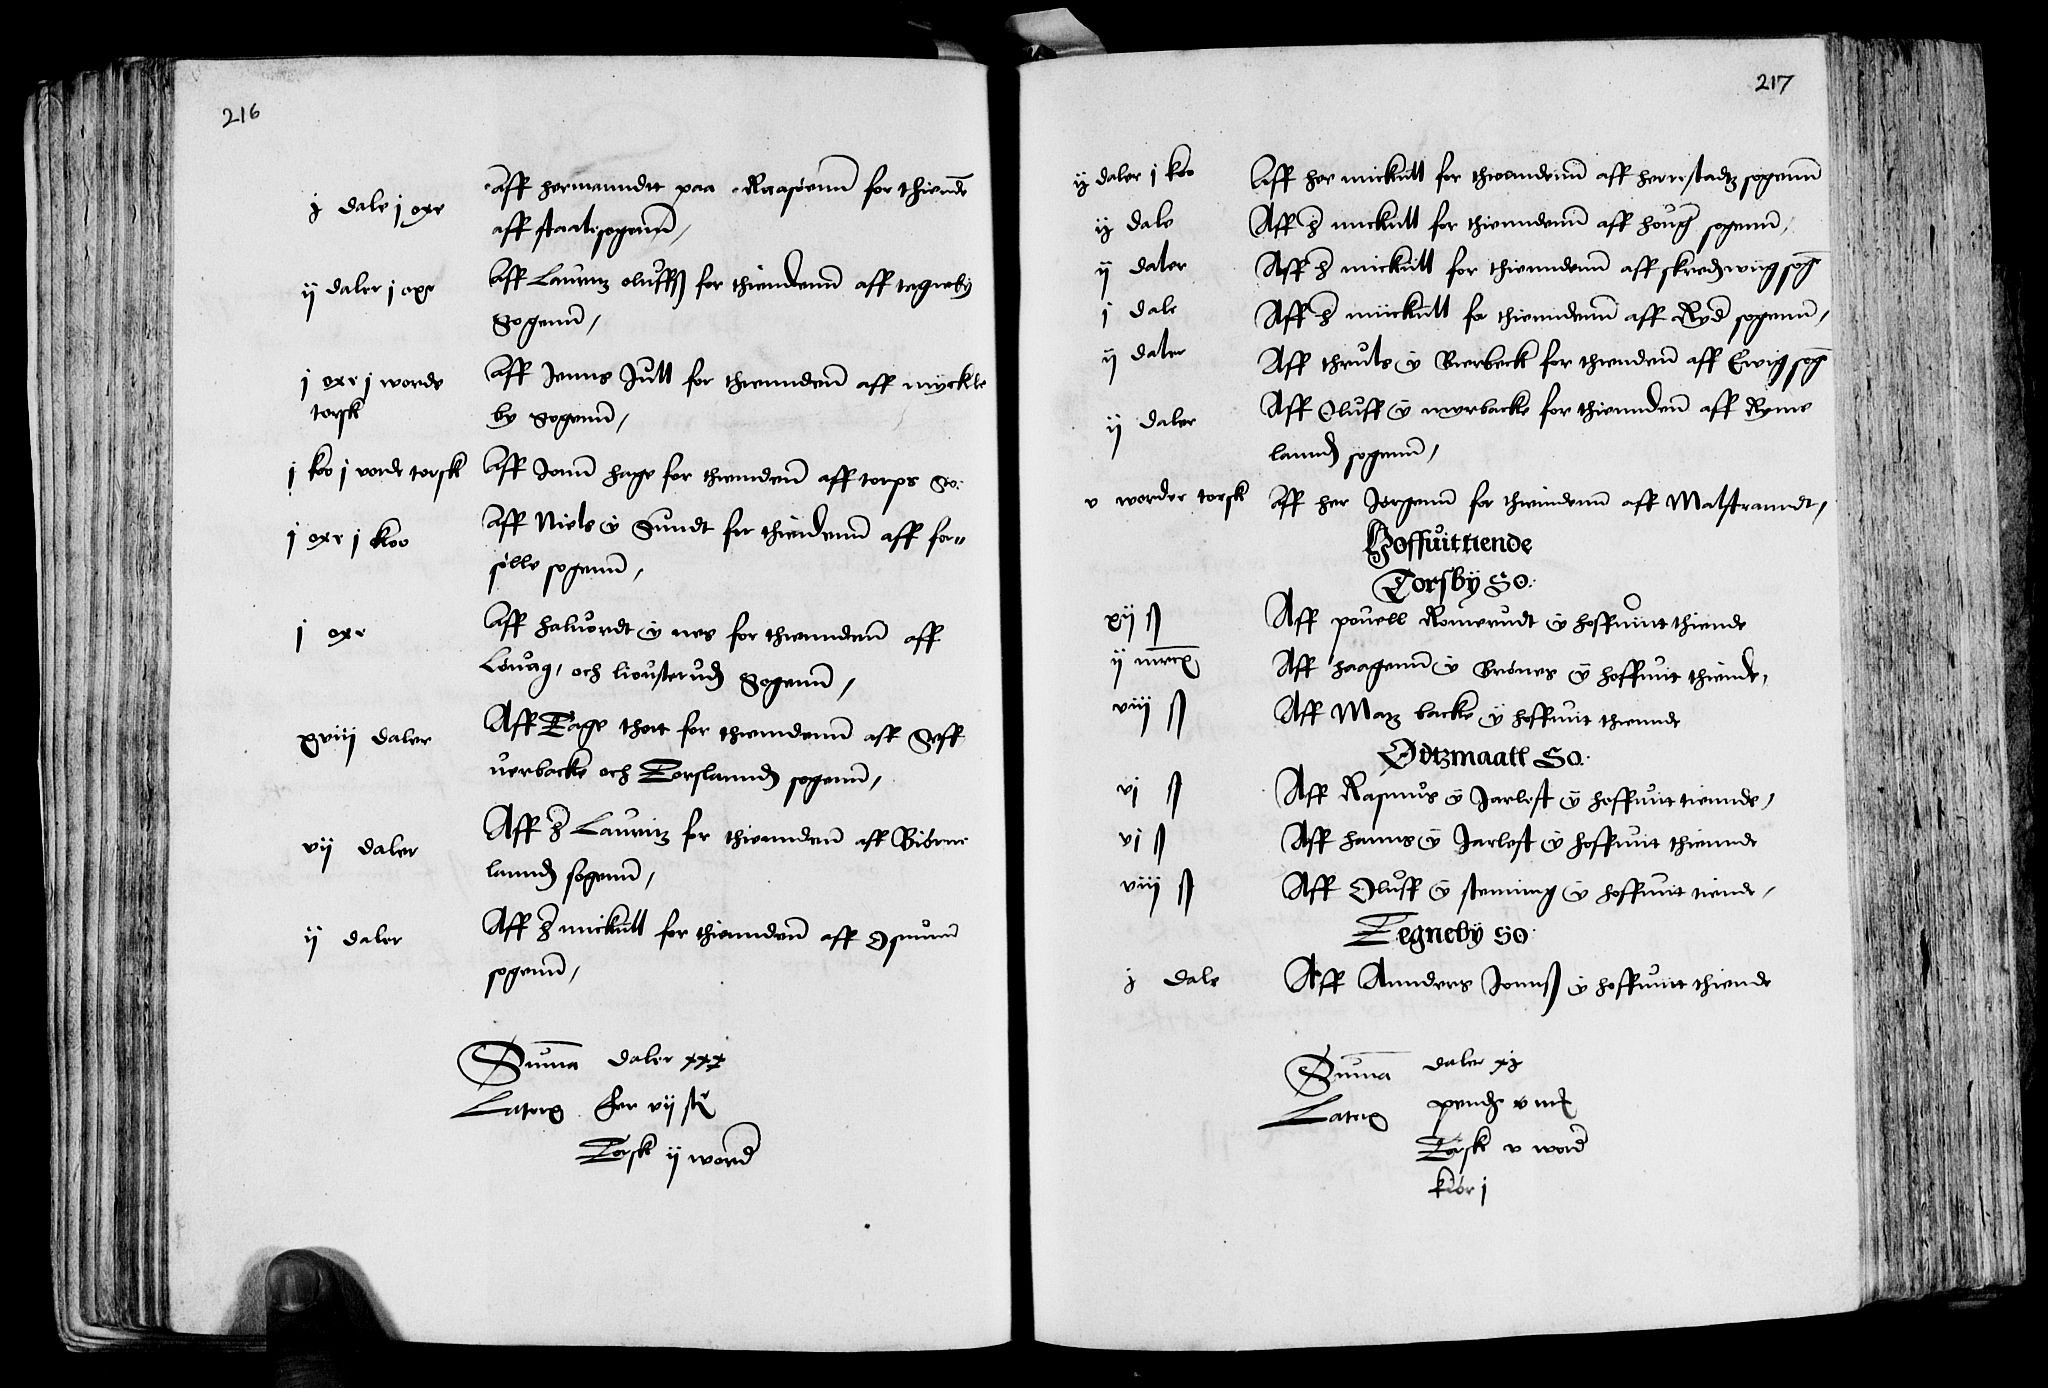 216
j dale j oxe
Aff hermanndtt paa Raasöenn for thiende
aff staale sogenn,
ij daler j oxe
Aff Lauritz oluffß for thiendenn aff tegneby
Sogenn,
j oxe j worde
torsk
Aff Jenns Jull for thienndenn aff myckle
by sogenn,
j koo j vorde torsk Aff Jonn hage for thienndenn aff torps so:
j oxe j koo
Aff Niels ÿ Sundt for thiendenn aff for=
sölle sogenn,
j oxe
Aff haluordt ÿ nes for thienndenn aff
Löuag, och liousterudz Sogenn,
xviij daler
Aff Tage thott for thienndenn aff Seff
uerbacke och Torslanndz sogenn,
vij daler
Aff h Lauritz for thienndenn aff Biörne
lanndz sogenn,
ij daler
Aff h mickill for thienndenn aff Osmunn
sogenn,
Summa daler xxx
Laterg fer vij st
Torsk ij word
217
ij daler j koo Aff her mickill for thienndenn aff herrestadtz sogenn
ij dale Aff h mickill for thienndenn aff houg sogenn,
ij daler Aff h mickill for thienndenn aff skredzwiig sog
j dale Aff h mickill for thienndenn aff Ryd sogenn,
ij daler Aff thruls ÿ Bierbeck for thiendenn aff Ewig sog
ij daler
Aff Oluff ÿ myrbacke for thienndenn aff Rome
lanndz sogenn,
v worder torsk Aff her Jörgenn for thiendenn aff Malstranndt,
Hoffuittiende
Torsbÿ So:
xij ß Aff pouell Romerudt ÿ hoffuitt thiende
ij marck Aff haagenn ÿ Brönes ÿ hoffuit thiende,
viij ß Aff Matz backe ÿ hoffuit thiennde
Ødtzmaall So:
vj ß Aff Rasmus ÿ Jarlest ÿ hoffuitt tiennde,
vj ß Aff hanns ÿ Jarlest ÿ hoffuitt thiennde
viij ß Aff Oluff ÿ stenning ÿ hoffuitt tiende,
Tegnebÿ So:
j dale Aff Annders Jonnß ÿ hoffuitt thiende
Summa daler xj
Laterg pendz v mk
Törsk v word
kiör j